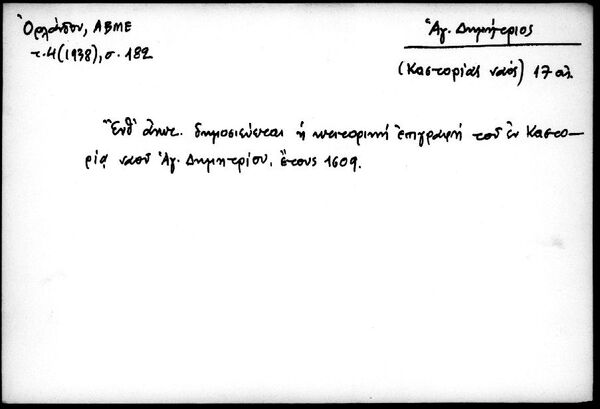 Ὀρλάνδου, ΑΒΜΕ
τ. 4 (1938), σ. 182
Ἁγ. Δημήτριος
(Καστορίας ναός) 17 αι.
Ἔνθ' ἀνωτ. δημοσιεύεται ἡ κτιτορική ἐπιγραφή τοῦ ἐν Καστο-
ρίᾳ ναοῦ Ἁγ. Δημητρίου, ἔτους 1609.